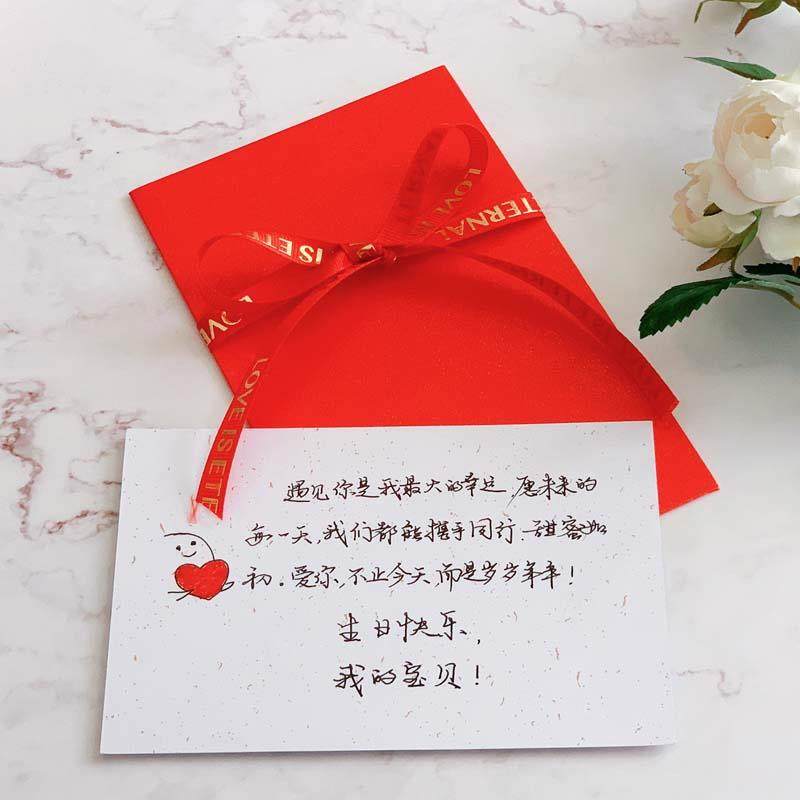 LOVE IS ETERNAL
LOVE IS ETE
遇见你是我最大的幸运,愿未来的
每一天,我们都能携手同行、甜蜜如
初。爱你,不止今天,而是岁岁年年!
生日快乐,
我的宝贝!